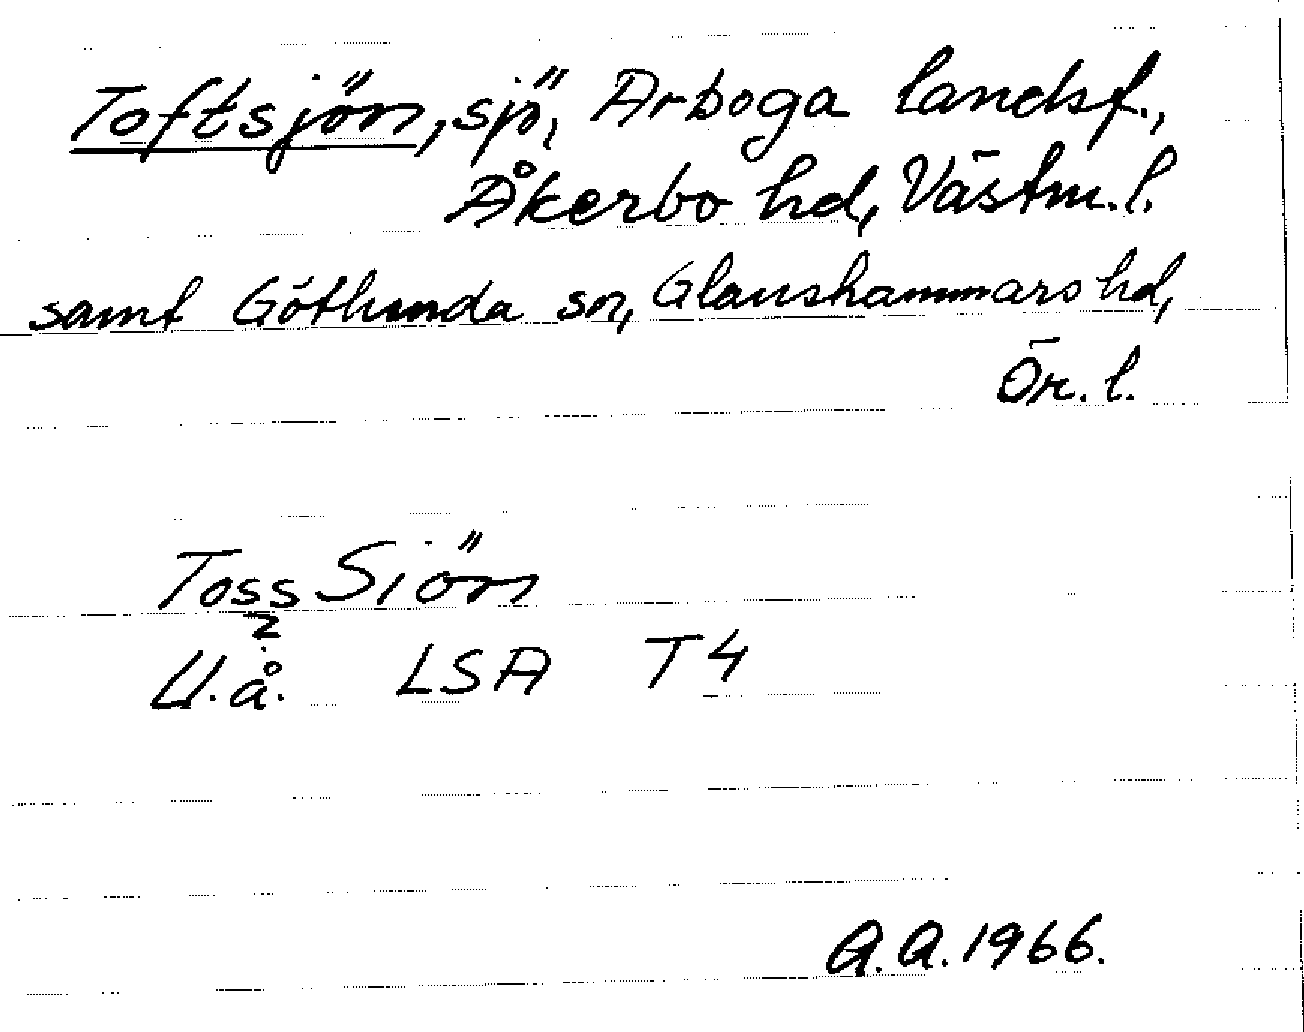 Toftsjön, sjö, Arboga landsf.,
Åkerbo hd, Västm.l.
samt Götlunda sn, Glanshammars hd,
Ör. l.
Toss Siön
2
U.å. LSA T4
A.A. 1966.